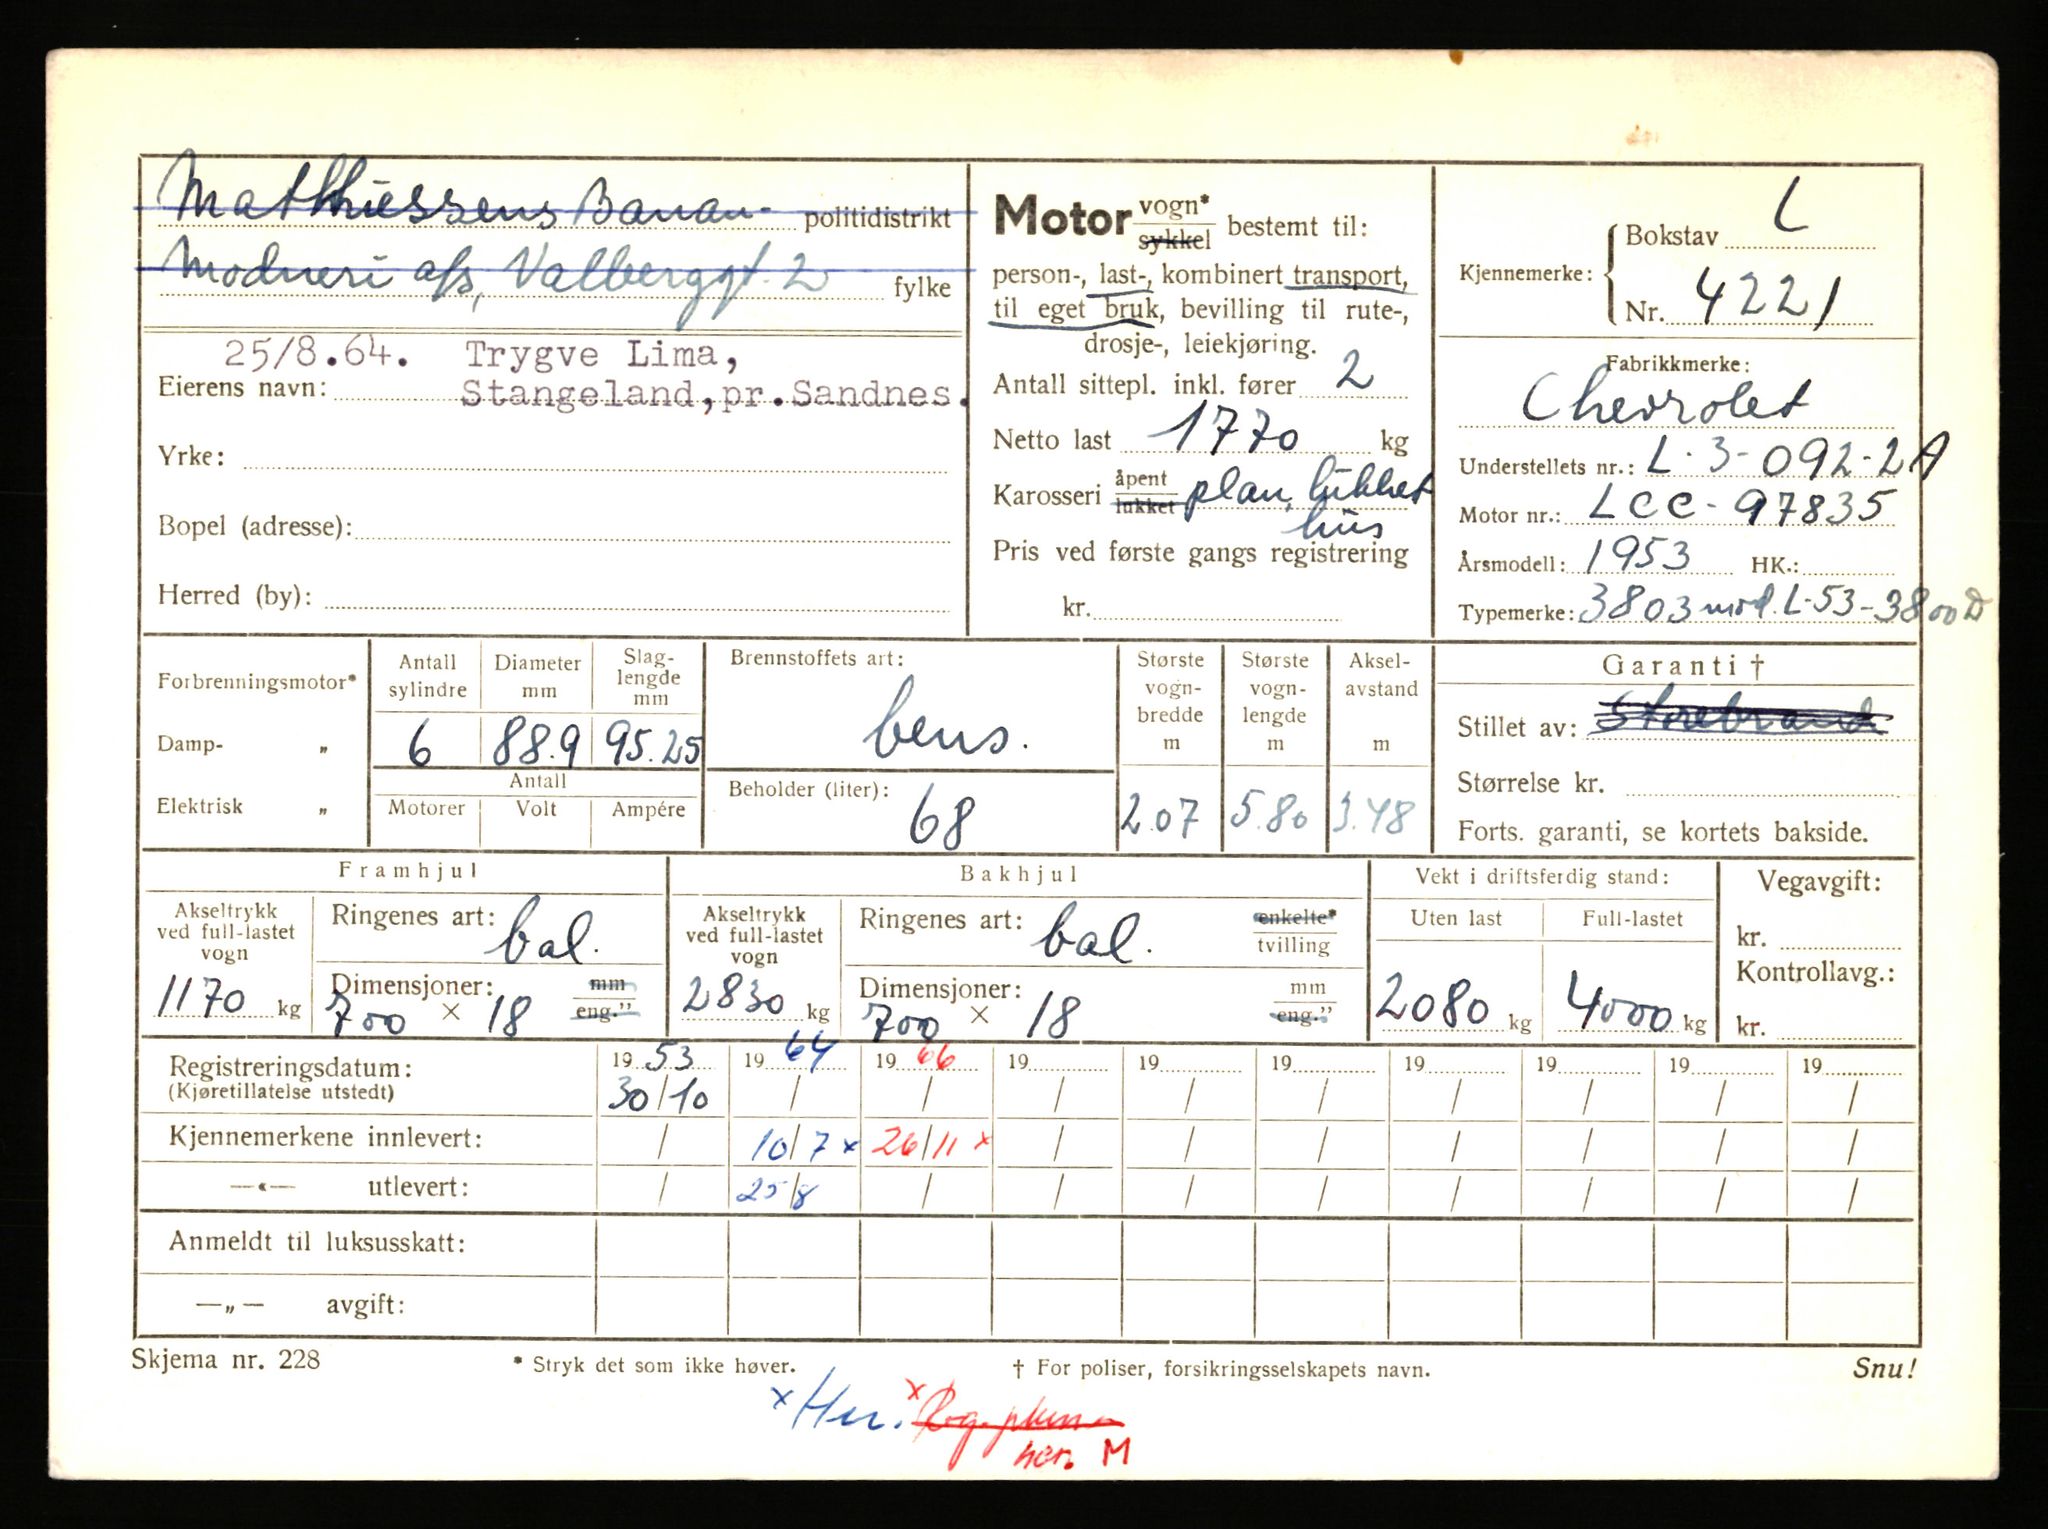 Matthiessens Banan- politidistrikt
Modneri a/s, Valberggt. 2 fylke
25/8.64. Trygve Lima,
Eierens navn: Stangeland, pr. Sandnes.
Yrke:
Bopel (adresse):
Herred (by):
Motor vogn* / sykkel bestemt til:
person-, last-, kombinert transport,
til eget bruk, bevilling til rute-,
drosje-, leiekjøring.
Antall sittepl. inkl. fører 2
Netto last 1770 kg
Karosseri åpent / lukket plan, lukket
hus
Pris ved første gangs registrering
kr.
Kjennemerke: { Bokstav L
Nr. 4221
Fabrikkmerke:
Chevrolet
Understellets nr.: L-3-092-2A
Motor nr.: LCC-97835
Årsmodell: 1953 HK.:
Typemerke: 3803 mod. L-53-3800D
Forbrenningsmotor*
Damp- „
Elektrisk „
Antall sylindre
6
Diameter mm
88.9
Slag-lengde mm
95.25
Antall
Motorer Volt Ampére
Brennstoffets art:
bens.
Beholder (liter):
68
Største vogn-bredde m
2.07
Største vogn-lengde m
5.80
Aksel-avstand m
3.48
Garanti †
Stillet av: Storebrand
Størrelse kr.
Forts. garanti, se kortets bakside.
Framhjul
Akseltrykk ved full-lastet vogn
1170 kg
Ringenes art: bal.
Dimensjoner: mm / eng."
700 × 18
Bakhjul
Akseltrykk ved full-lastet vogn
2830 kg
Ringenes art: bal. enkelte* / tvilling
Dimensjoner: mm / eng."
700 × 18
Vekt i driftsferdig stand:
Uten last Full-lastet
2080 kg 4000 kg
Vegavgift:
kr.
Kontrollavg.:
kr.
Registreringsdatum: 19 53 19 64 19 66 19 19 19 19 19 19 19
(Kjøretillatelse utstedt) 30/10 / / / / / / / / /
Kjennemerkene innlevert: / 10/7 x 26/11 x / / / / / / /
—«— utlevert: / 25/8 / / / / / / / /
Anmeldt til luksusskatt:
—„— avgift:
Skjema nr. 228 * Stryk det som ikke høver. † For poliser, forsikringsselskapets navn. Snu!
x Her. x
her. M